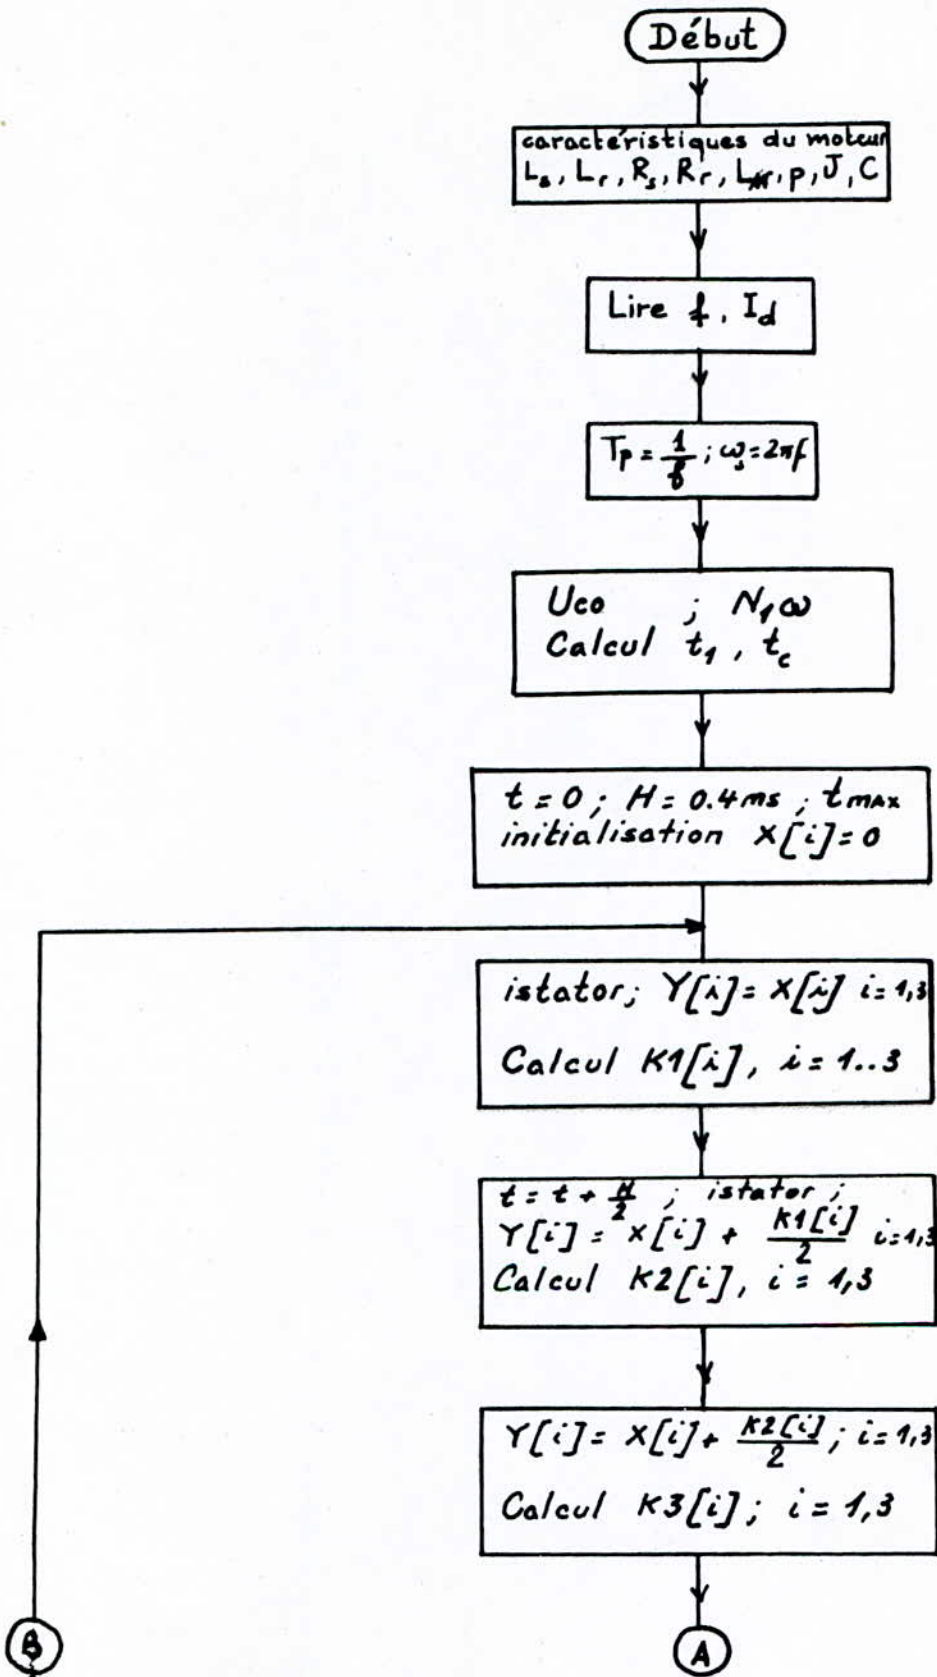 Début
caractéristiques du moteur
Ls, Lr, Rs, Rr, LM, p, J, C
Lire f, Id
Tp = 1/f ; ωs = 2πf
Uco ; N1ω
Calcul t1, tc
t = 0 ; H = 0.4 ms ; tMAX
initialisation X[i] = 0
istator; Y[i] = X[i] i = 1,3
Calcul K1[i], i = 1..3
t = t + H/2 ; istator ;
Y[i] = X[i] + K1[i]/2 i = 1,3
Calcul K2[i], i = 1,3
Y[i] = X[i] + K2[i]/2 ; i = 1,3
Calcul K3[i] ; i = 1,3
B
A